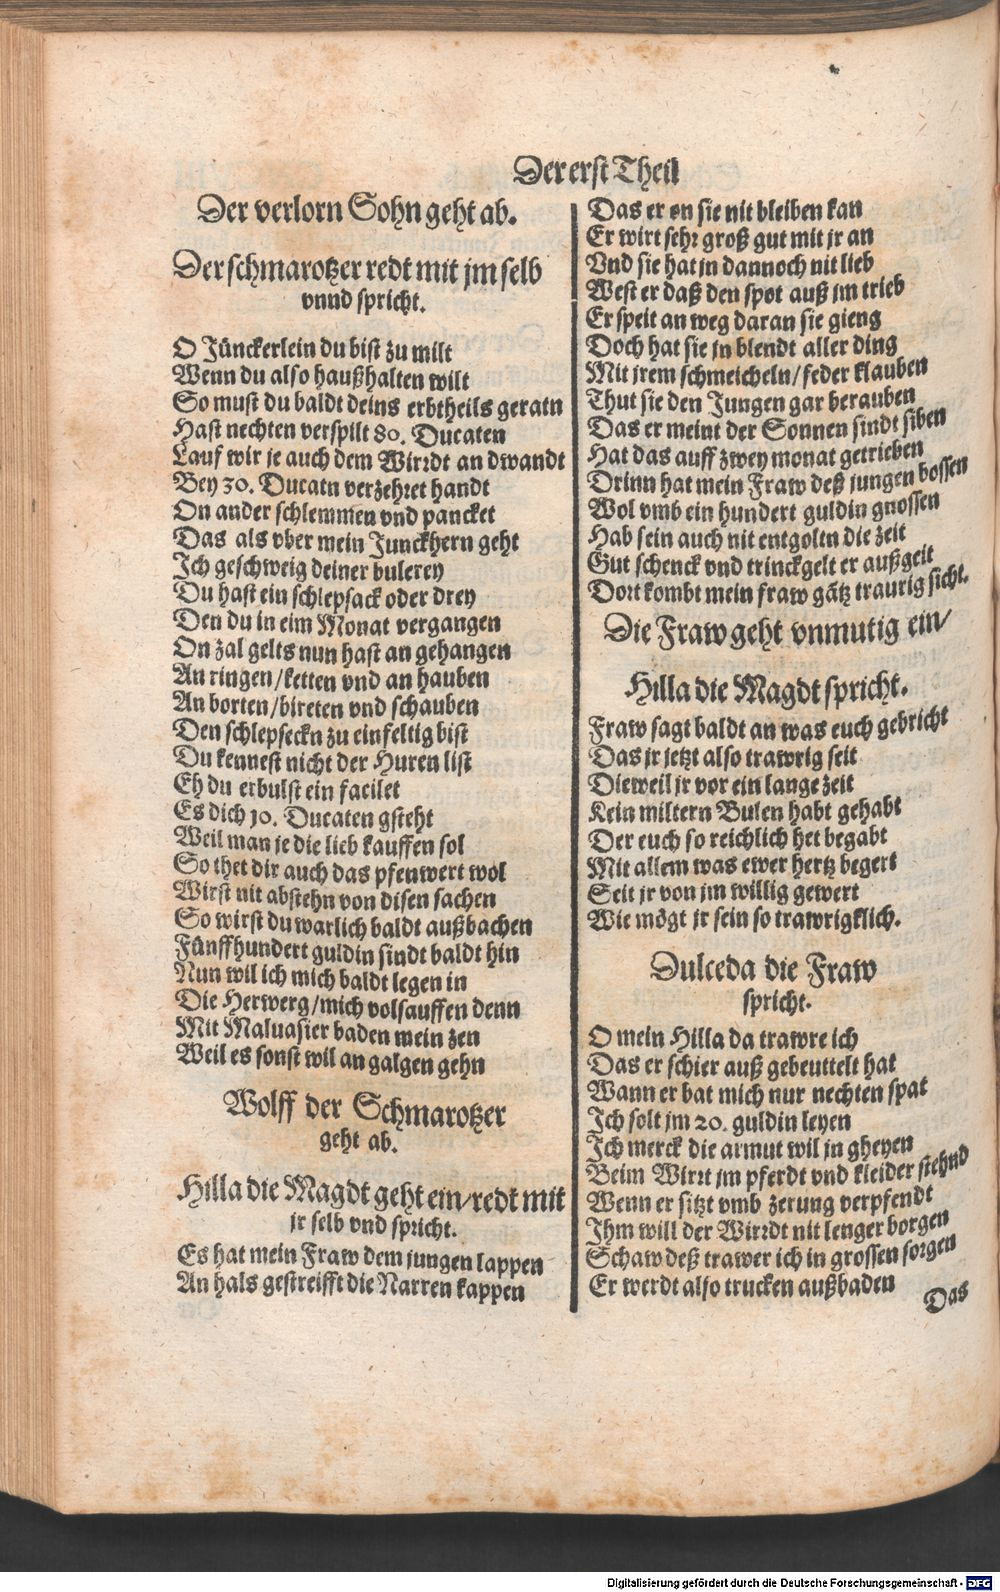 Der erst Theil
Der verlorn Sohn geht ab.
Der schmarotzer redt mit jm selb
vnnd spricht.
O Jünckerlein du bist zu milt
Wenn du also haußhalten wilt
So must du baldt deins erbtheils geratn
Hast nechten verspilt 80. Ducaten
Lauf wir je auch dem Wirrdt an dwandt
Bey 30. Ducatn verzehret handt
On ander schlemmen vnd pancket
Das als vber mein Junckhern geht
Ich geschweig deiner bulerey
Du hast ein schlepsack oder drey
Den du in eim Monat vergangen
On zal gelts nun hast an gehangen
An ringen/ketten vnd an hauben
An borten/bireten vnd schauben
Den schlepseckn zu einfeltig bist
Du kennest nicht der Huren list
Eh du erbulst ein facilet
Es dich 10. Ducaten gsteht
Weil man je die lieb kauffen sol
So thet dir auch das pfenwert wol
Wirst nit abstehn von disen sachen
So wirst du warlich baldt außbachen
Fünffhundert guldin sindt baldt hin
Nun wil ich mich baldt legen in
Die Herwerg/mich volsauffen denn
Mit Maluasier baden mein zen
Weil es sonst wil an galgen gehn
Wolff der Schmarotzer
geht ab.
Hilla die Magdt geht ein/redt mit
jr selb vnd spricht.
Es hat mein Fraw dem jungen lappen
An hals gestreifft die Narren kappen
Das er on sie nit bleiben kan
Er wirt sehr groß gut mit jr an
Vnd sie hat jn dannoch nit lieb
West er daß den spot auß jm trieb
Er speit an weg daran sie gieng
Doch hat sie jn blendt aller ding
Mit jrem schmeicheln/feder klauben
Thut sie den Jungen gar berauben
Das er meint der Sonnen sindt siben
Hat das auff zwey monat getrieben
Drinn hat mein Fraw deß jungen bossen
Wol vmb ein hundert guldin gnossen
Hab sein auch nit entgoltn die zeit
Gut schenck vnd trinckgelt er außgeit
Dort kombt mein fraw gãtz traurig sicht.
Die Fraw geht vnmutig ein/
Hilla die Magdt spricht.
Fraw sagt baldt an was euch gebricht
Das jr jetzt also trawrig seit
Dieweil jr vor ein lange zeit
Kein miltern Bulen habt gehabt
Der euch so reichlich het begabt
Mit allem was ewer hertz begert
Seit jr von jm willig gewert
Wie mögt jr sein so trawrigklich.
Dulceda die Fraw
spricht.
O mein Hilla da trawre ich
Das er schier auß gebeuttelt hat
Wann er bat mich nur nechten spat
Ich solt jm 20. guldin leyen
Ich merck die armut wil jn gheyen
Beim Wirrt jm pferdt vnd kleider stehnd
Wenn er sitzt vmb zerung verpfendt
Ihm will der Wirrdt nit lenger borgen
Schaw deß trawer ich in grossen sorgen
Er werdt also trucken außbaden
Das
Digitalisierung gefördert durch die Deutsche Forschungsgemeinschaft - DFG